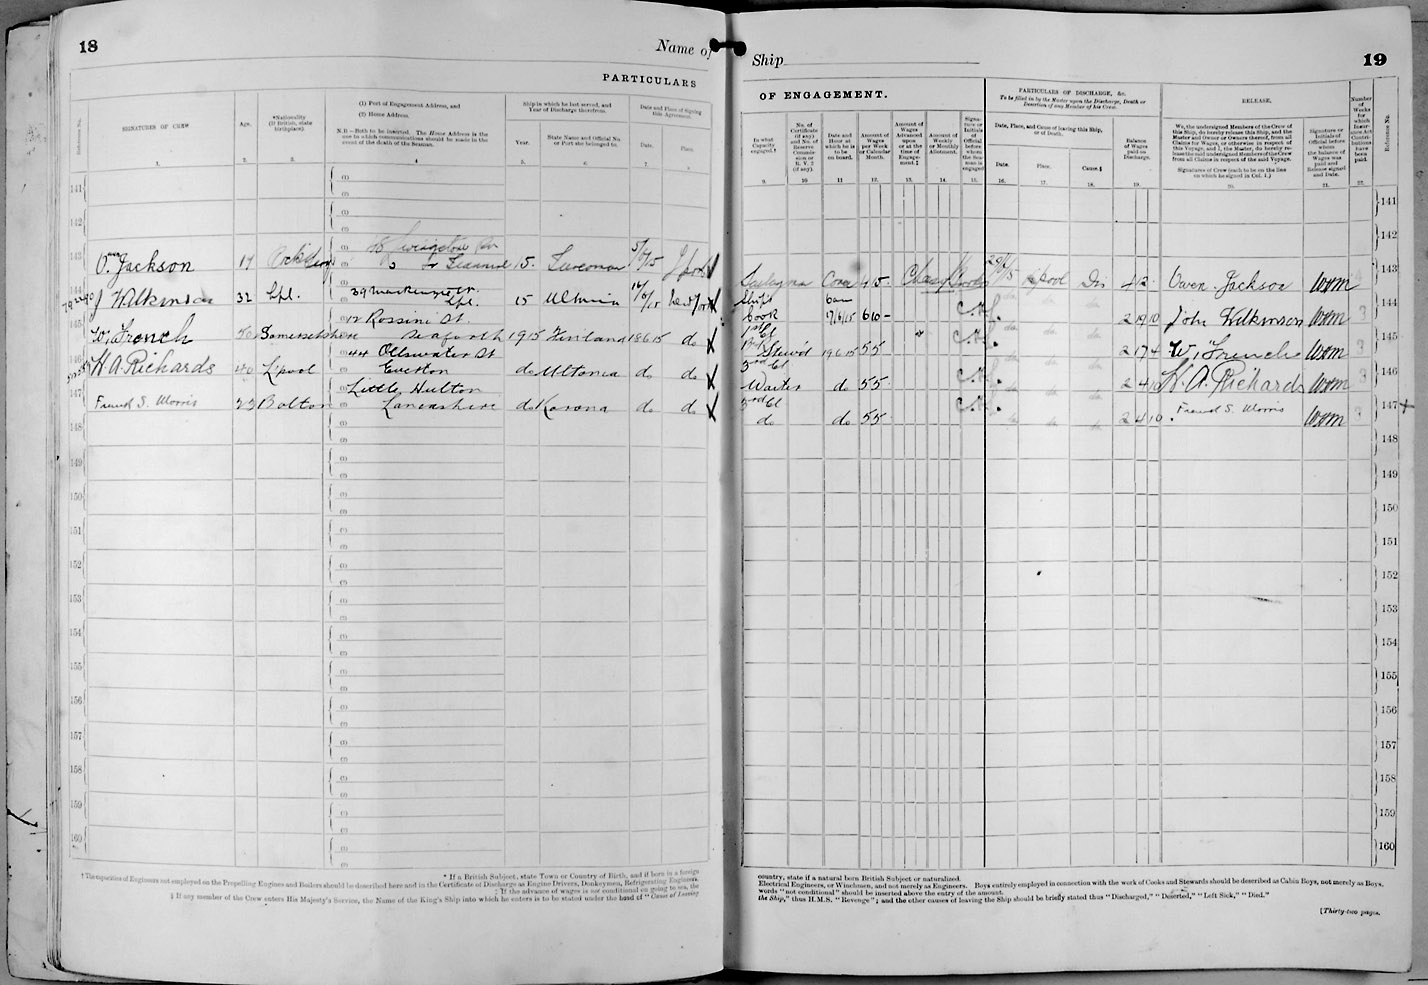 18
Name of
Ship
19
PARTICULARS
OF ENGAGEMENT.
Reference No.
SIGNATURES OF CREW
Age.
*Nationality
(If British, state
birthplace).
(1) Port of Engagement Address, and
(2) Home Address.
N.B.—Both to be inserted. The Home Address is the
one to which communications should be made in the
event of the death of the Seaman.
Ship in which he last served, and
Year of Discharge therefrom.
Year.
State Name and Official No.
or Port she belonged to.
Date and Place of signing
this Agreement.
Date.
Place.
In what
Capacity
engaged.†
No. of
Certificate
(if any)
and No. of
Reserve
Commis-
sion or
R. V. 2
(if any).
Date and
Hour at
which he is
to be
on board.
Amount of
Wages
per Week
or Calendar
Month.
Amount of
Wages
Advanced
upon
or at the
time of
Engage-
ment.‡
Amount of
Weekly
or Monthly
Allotment.
Signa-
ture or
Initials
of
Official
before
whom
the Sea-
man is
engaged
PARTICULARS OF DISCHARGE, &c.
To be filled in by the Master upon the Discharge, Death or
Desertion of any Member of his Crew.
Date, Place, and Cause of leaving this Ship,
or of Death.
Date.
Place.
Cause.§
Balance
of Wages
paid on
Discharge.
RELEASE.
We, the undersigned Members of the Crew of
this Ship, do hereby release this Ship, and the
Master and Owner or Owners thereof, from all
Claims for Wages, or otherwise in respect of
this Voyage, and I, the Master, do hereby re-
lease the said undersigned Members of the Crew
from all Claims in respect of the said Voyage.
Signatures of Crew (each to be on the line
on which he signed in Col. 1.)
Signature or
Initials of
Official before
whom
the balance of
Wages was
paid and
Release signed
and Date.
Number
of
Weeks
for
which
Insur-
ance Act
Contri-
butions
have
been
paid.
Reference No.
1. 2. 3. 4 5. 6. 7. 8.
9. 10 11 12. 13. 14. 15. 16. 17. 18. 19. 20. 21. 22.
141
142
143 Owen Jackson 15. 5/6/15
Owen Jackson WOM
144 J Wilkinson 32 Lpl. 39 Mackenzie St.
Lpl. 15 Ultonia
Ship's 6am
Cook 17/6/15 6 10 - 2 19 10 John Wilkinson WOM 3
145 W. French Somersetshire 12 Rossini St.
Seaforth 1915 18 6 15 do X
1st Cl
Stew'd 19 6 15 55 do do do 2 17 4 W. French WOM 3
146 H. A. Richards 40 L'pool 44 Ullswater St
Everton do Ultonia do do X
3rd Cl
Waiter do 55 - do do do 2 4 10 H. A. Richards WOM 3
147 S. Morris 23 Bolton Little Hulton
Lancashire do do do X
3rd Cl
do do 55 - do do do 2 4 10 S. Morris WOM 3
148
149
150
151
152
153
154
155
156
157
158
159
160
* If a British Subject, state Town or Country of Birth, and if born in a foreign
country, state if a natural born British Subject or naturalized.
† The capacities of Engineers not employed on the Propelling Engines and Boilers should be described here and in the Certificate of Discharge as Engine Drivers, Donkeymen, Refrigerating Engineers,
Electrical Engineers, or Winchmen, and not merely as Engineers. Boys entirely employed in connection with the work of Cooks and Stewards should be described as Cabin Boys, not merely as Boys.
‡ If the advance of wages is not conditional on going to sea, the
words "not conditional" should be inserted above the entry of the amount.
§ If any member of the Crew enters His Majesty's Service, the Name of the King's Ship into which he enters is to be stated under the head of "Cause of Leaving
the Ship," thus H.M.S. "Revenge"; and the other causes of leaving the Ship should be briefly stated thus "Discharged," "Deserted," "Left Sick," "Died."
[Thirty-two pages.